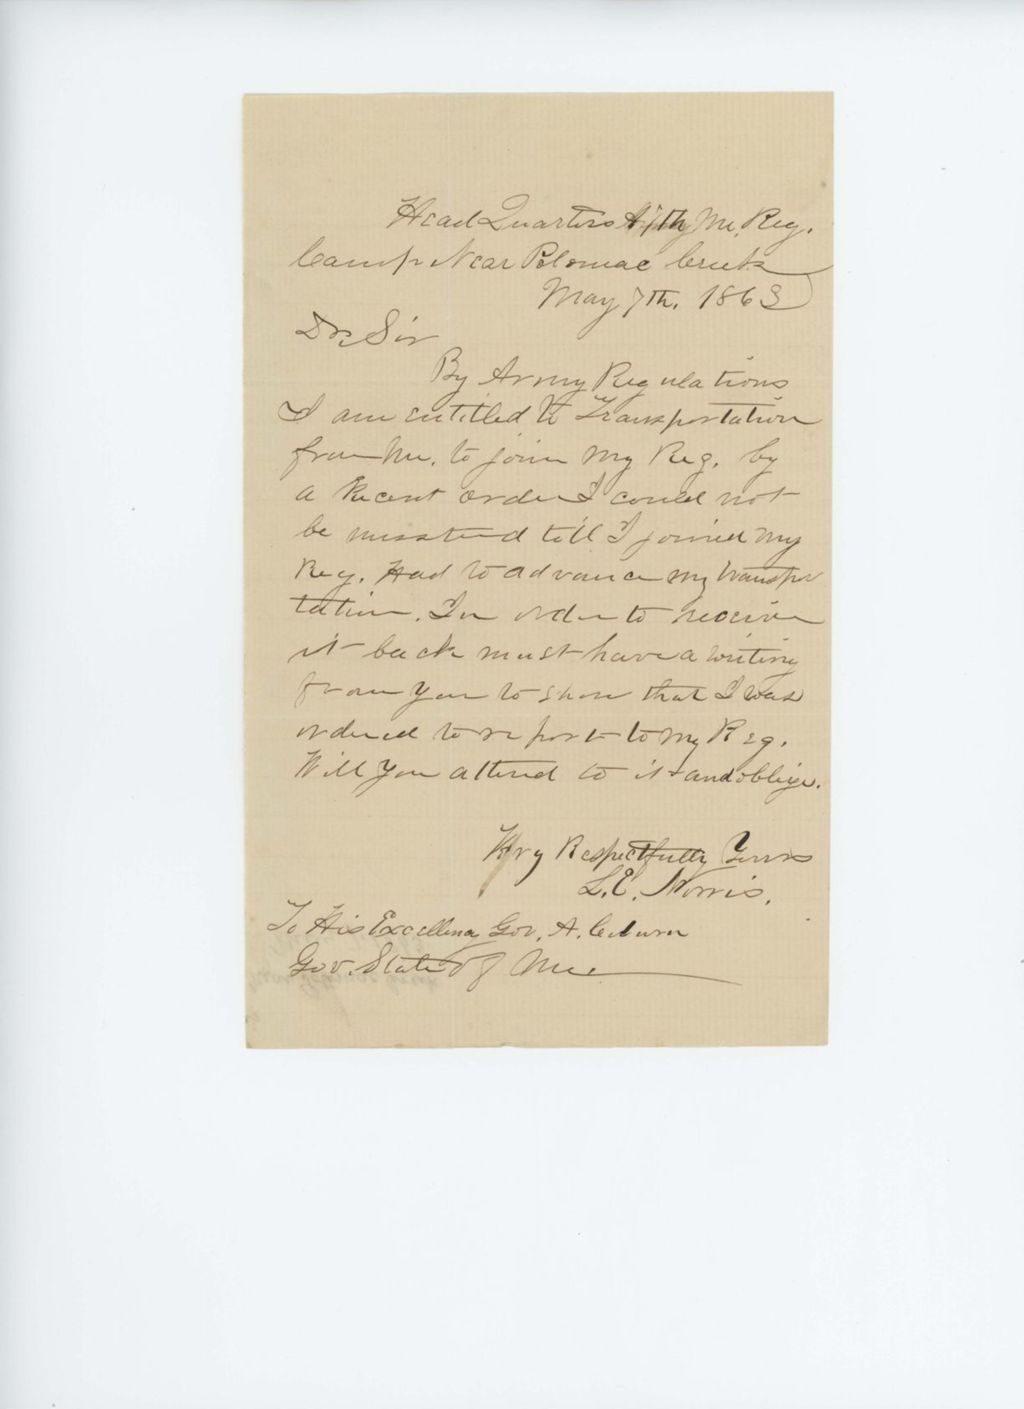 Head Quarters 17th Me. Reg.
Camp Near Potomac Creek
May 7th. 1863
Dr. Sir
By Army Regulations
I am entitled to Transportation
from Me. to join my Reg. by
a Recent order I could not
be musterd till I joined my
Reg. Had to advance my transpor
tation. In order to receive
it back must have a writing
from you to show that I was
ordered to report to my Reg.
Will you attend to it and oblige.
Very Respectfully Yours
L. E. Norris.
To His Excellency Gov. A. Coburn
Gov. State of Me